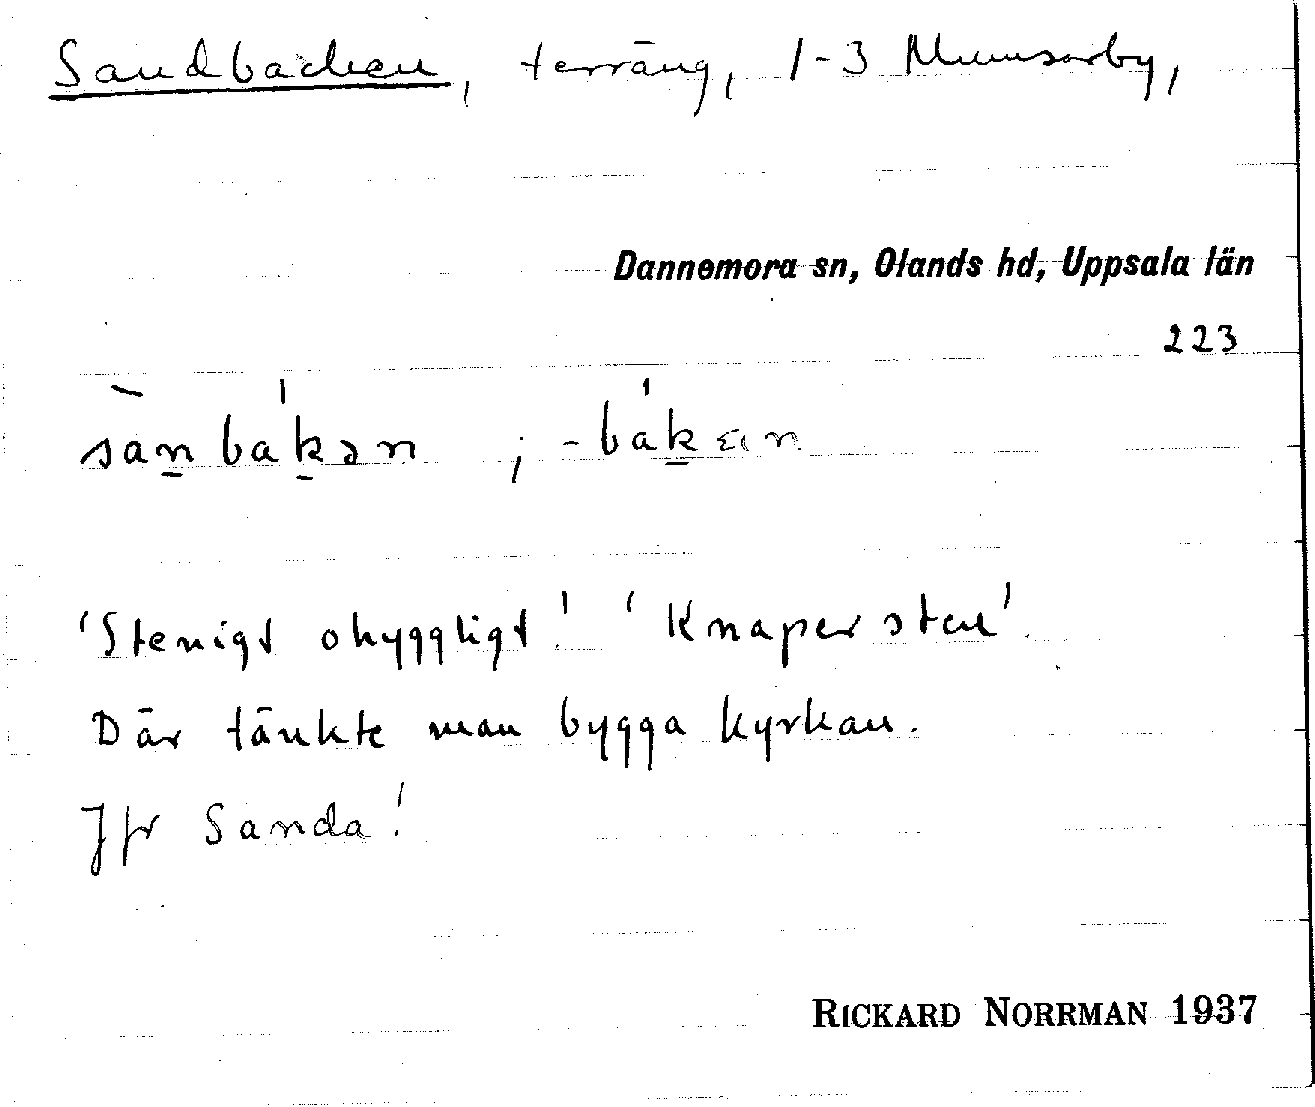 Sandbacken, terräng, 1-3 Mumsarby,
Dannemora sn, Olands hd, Uppsala län
223
sàn̠bák̠ən ; -bák̠an
'Stenigt ohyggligt!' 'Knapersten'.
Där tänkte man bygga kyrkan.
Jfr Sanda!
RICKARD NORRMAN 1937